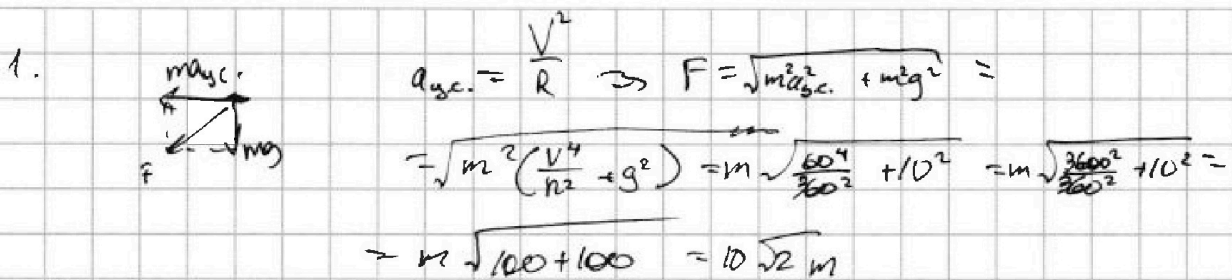 1.
ma ц.с.
mg
F
a ц.с. = V²/R ⇒ F = √(m²a²ц.с. + m²g²) =
= √(m²(V⁴/R² + g²)) = m √(60⁴/360² + 10²) = m √(3600²/360² + 10²) =
= m √(100 + 100) = 10√2 m